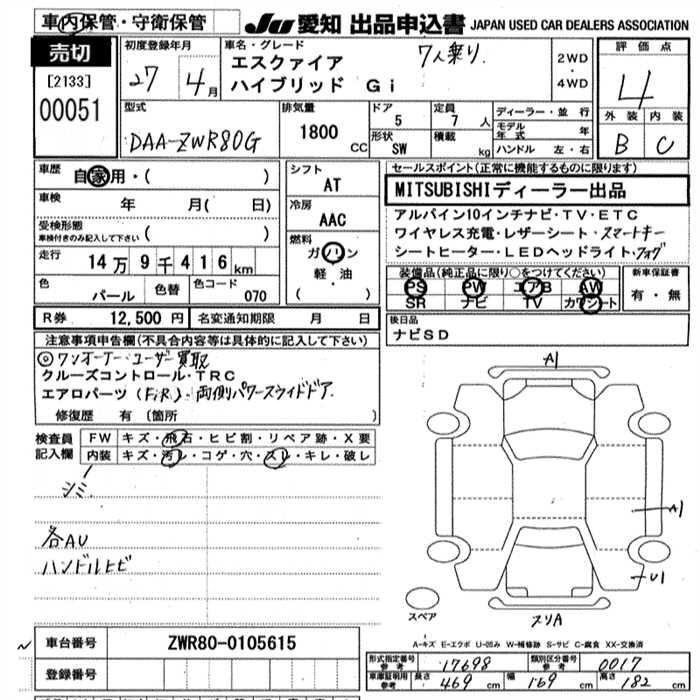 車内保管・守衛保管
JU 愛知 出品申込書 JAPAN USED CAR DEALERS ASSOCIATION
売切
[2133]
00051
初度登録年月
27 4月
車名・グレード
7人乗り
エスクァイア
ハイブリッド Gi
2WD
・
4WD
評価点
4
外装 内装
B C
型式
DAA-ZWR80G
排気量
1800 CC
ドア
5
形状
SW
定員
7 人
積載
kg
ディーラー・並行
モデル年式 年
ハンドル 左・右
車歴
自家用・( )
車検 年 月( 日)
受検形態
車検付きのみ記入して下さい ( )
走行 14万9千416km
色 パール 色替 色コード 070
シフト
AT
冷房
AAC
燃料
ガソリン
軽・油
( )
セールスポイント(正常に機能するものに限ります)
MITSUBISHIディーラー出品
アルパイン10インチナビ・TV・ETC
ワイヤレス充電・レザーシート・スマートキー
シートヒーター・LEDヘッドライト・フォグ
装備品(純正品に限り○をつけてください)
PS PW エアB AW
SR ナビ TV カワシート
新車保証書
有・無
R券 12,500円 名変通知期限 月 日
後日品
ナビSD
注意事項申告欄(不具合内容等は具体的に記入して下さい)
◎ワンオーナー・ユーザー買取
クルーズコントロール・TRC
エアロパーツ(F.R)・両側パワースライドドア
修復歴 有 〔箇所 〕
検査員記入欄
FW キズ・飛石・ヒビ割・リペア跡・X要
内装 キズ・汚レ・コゲ・穴・スレ・キレ・破レ
シミ
各AU
ハンドルヒビ
A1
A1
U1
スペア
スリA
A-キズ E-エクボ U-凹み W-補修跡 S-サビ C-腐食 XX-交換済
車台番号 ZWR80-0105615
登録番号
形式指定番号参考 17698 類別区分番号参考 0017
車庫証明用参考 長さ 469cm 幅 169cm 高さ 182cm